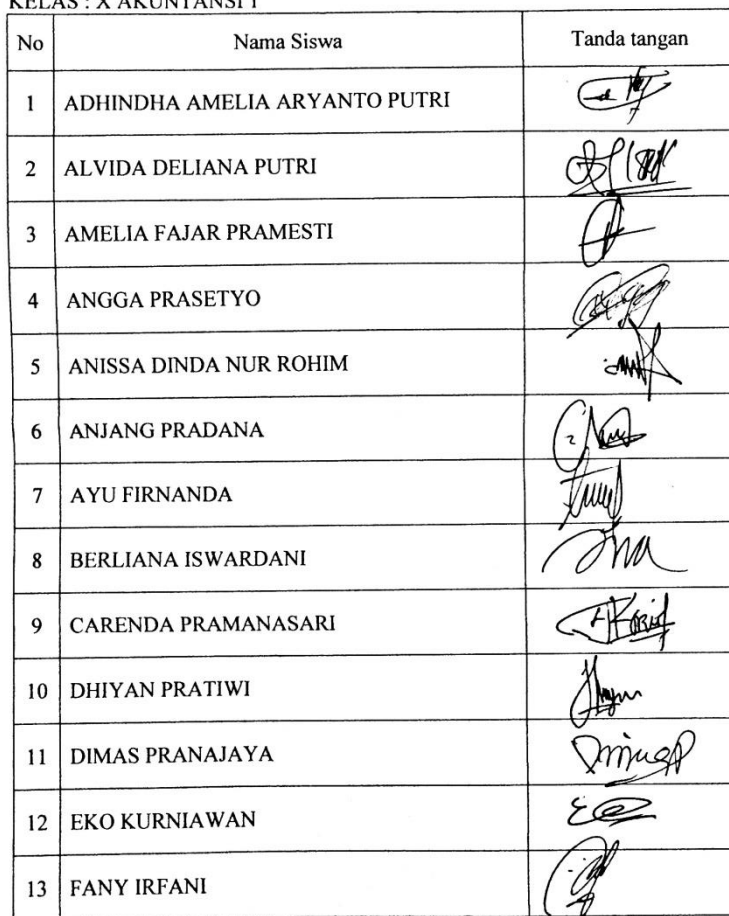 KELAS : X AKUNTANSI 1
No Nama Siswa Tanda tangan
1 ADHINDHA AMELIA ARYANTO PUTRI
2 ALVIDA DELIANA PUTRI
3 AMELIA FAJAR PRAMESTI
4 ANGGA PRASETYO
5 ANISSA DINDA NUR ROHIM
6 ANJANG PRADANA
7 AYU FIRNANDA
8 BERLIANA ISWARDANI
9 CARENDA PRAMANASARI
10 DHIYAN PRATIWI
11 DIMAS PRANAJAYA
12 EKO KURNIAWAN
13 FANY IRFANI